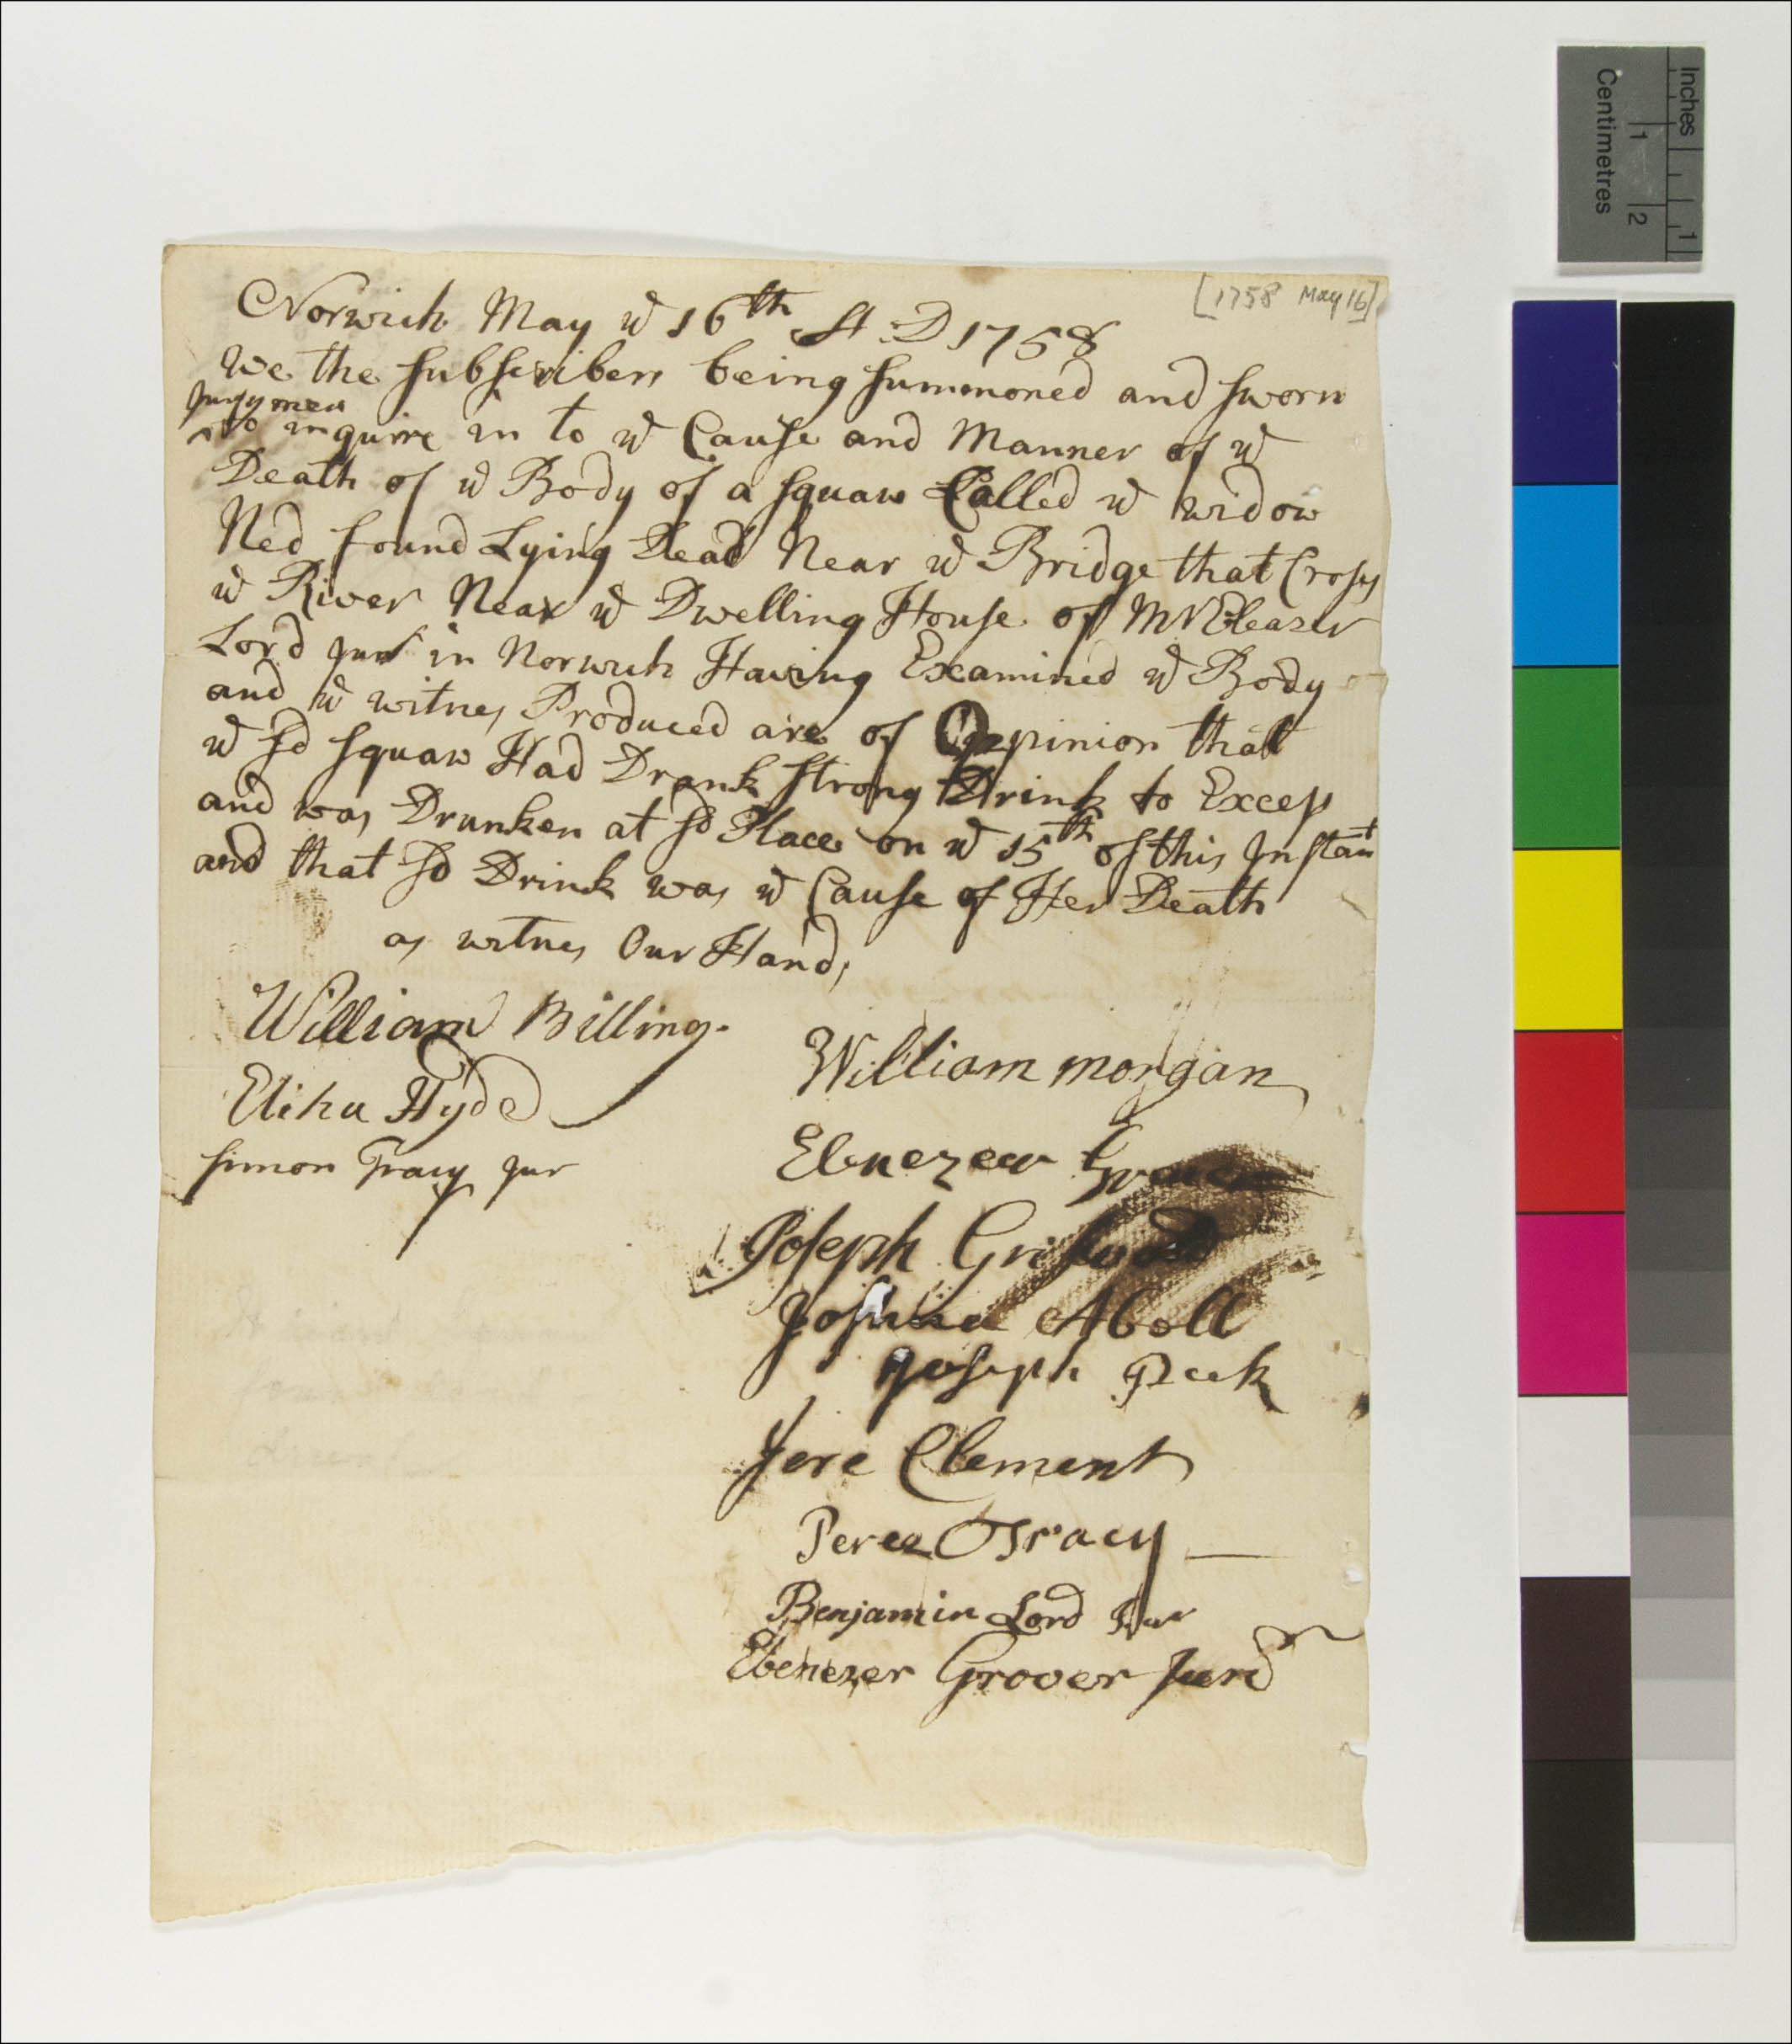 [1758 May 16]
Norwich May ye 16th A:D 1758
We the subscribers being summoned and sworn
Jurymen
to inquire in to ye Cause and Manner of ye
Death of ye Body of a squaw Called ye widow
Ned found Lying Dead Near ye Bridge that Croses
ye River Near ye Dwelling House of Mr Eleazer
Lord Junr in Norwich Having Examined ye Body
and ye witnes Produced are of Oppinion that
ye sd squaw Had Drank strong Drink to Excess
and was Drunken at sd Place on ye 15th of this Instant
and that sd Drink was ye Cause of Her Death
as witnes Our Hands
William Billings
Elihu Hyde
Simon Tracy Jur
William morgan
Ebenezer
Joseph
Joshua Aboll
Joseph Peck
Jere Clement
Perez Tracy
Benjamin Lord Jur
Ebenezer Grover Jund
Inches
1
Centimetres
1 2